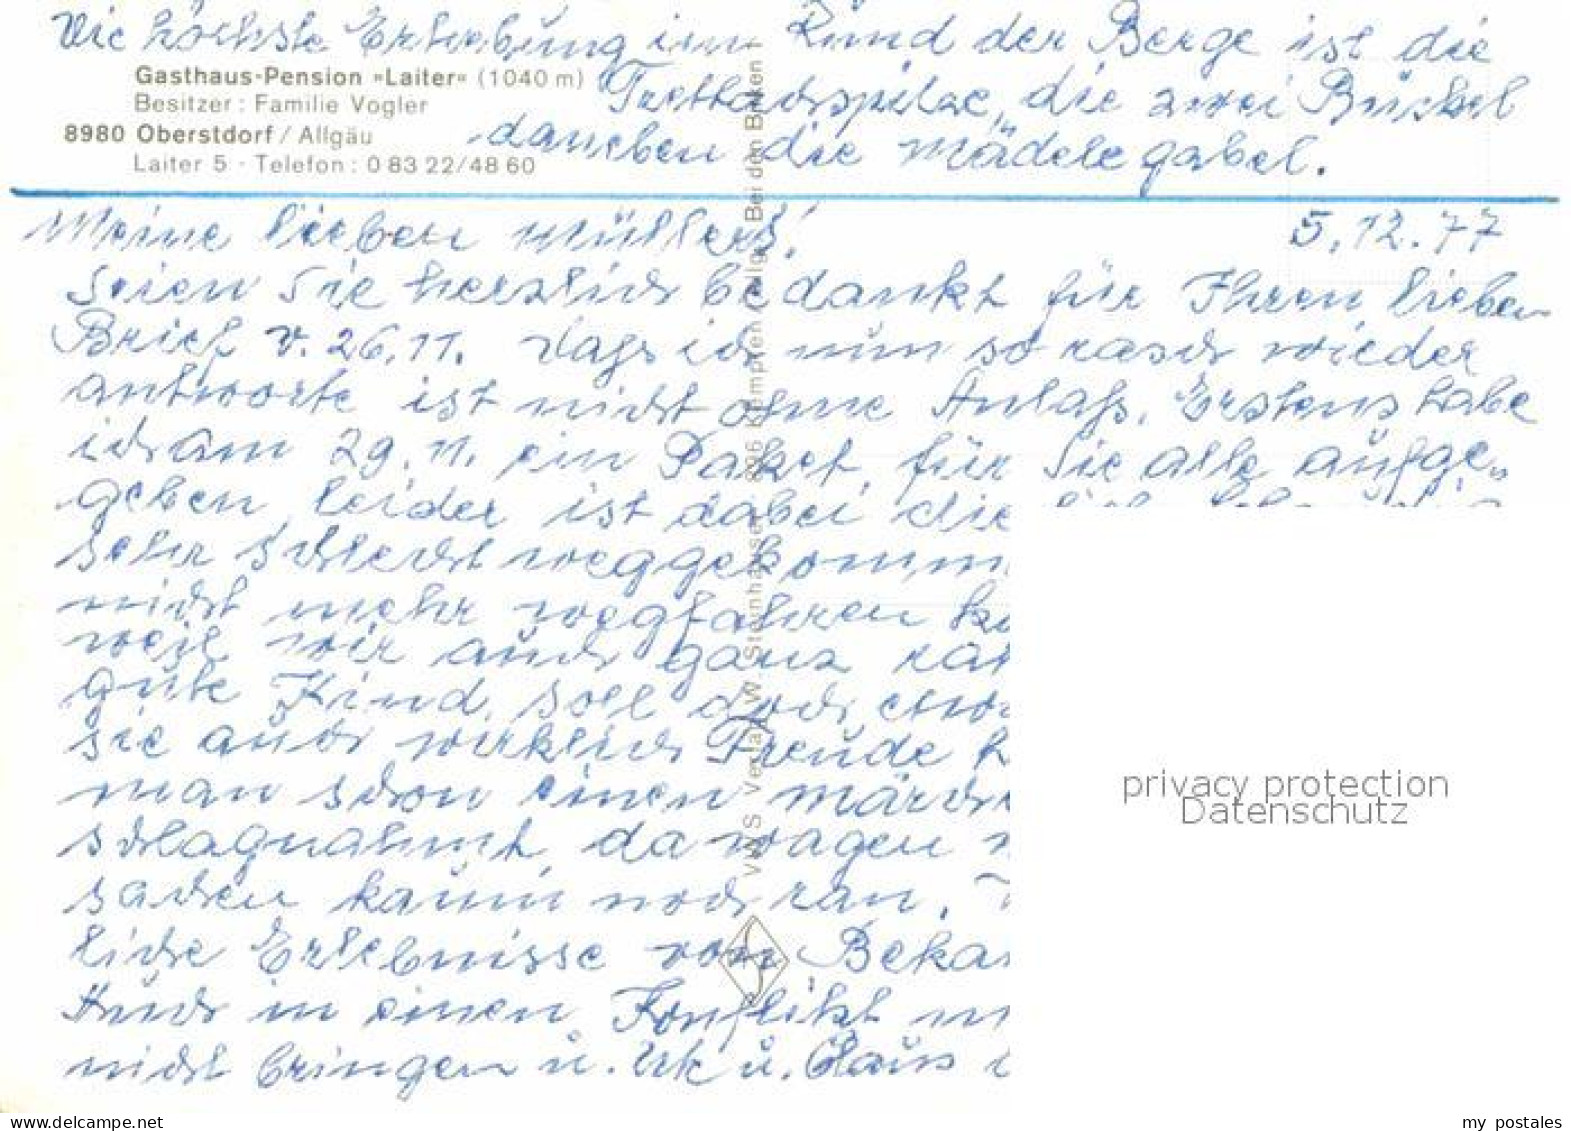 Die höchste Erhebung im Rund der Berge ist die
Gasthaus-Pension »Laiter« (1040 m)
Trettachspitze, die zwei Buckel
Besitzer: Familie Vogler
8980 Oberstdorf / Allgäu
daneben die Mädelegabel.
Laiter 5 · Telefon: 0 83 22/48 60
Meine lieben Müllers! 5.12.77
Seien Sie herzlich bedankt für Ihren lieben
Brief v. 26.11. Daß ich nun so rasch wieder
antworte ist nicht ohne Anlaß. Erstens habe
ich am 29.11. ein Paket für Sie alle aufge„
geben, leider ist dabei die
sehr schlecht weggekomm
nicht mehr wegfahren
weil wir auch ganz
gute Kind soll doch
sie auch wirklich Freude
man schon einen
schlagnahmt, da wagen
sachen kaum noch ran.
liche Erlebnisse von Beka
Auch in einen Konflikt
nicht bringen u. u. Claus
VWS Verlag W. Steinhauser 896 Kempten (Allg.) Bei den Birken 1
privacy protection
Datenschutz
my postales